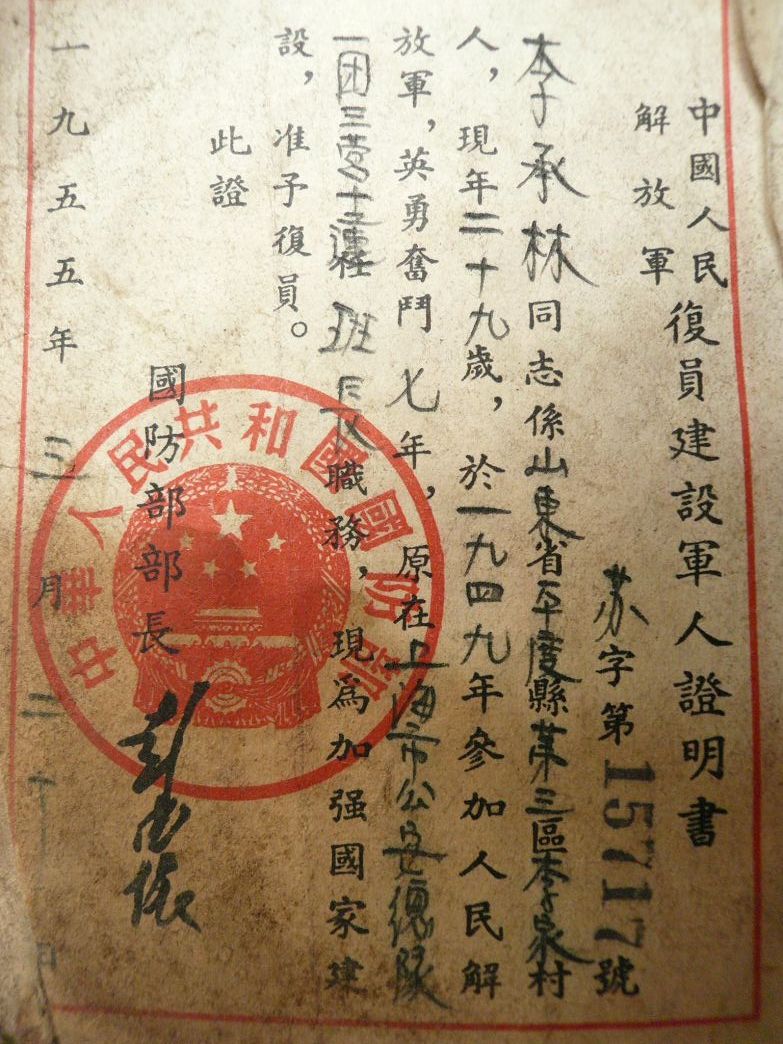 中國人民
解放軍
復員建設軍人證明書
苏字第15717號
李承林同志係山東省平度縣第三區李泉村
人，現年二十九歲，於一九四九年參加人民解
放軍，英勇奮鬥七年，原在上海市公安總隊
一团三营十二連任班長職務，現爲加强國家建
設，准予復員。
此證
國防部部長 彭德懷
中華人民共和國國防部
一九五五年三月二十日